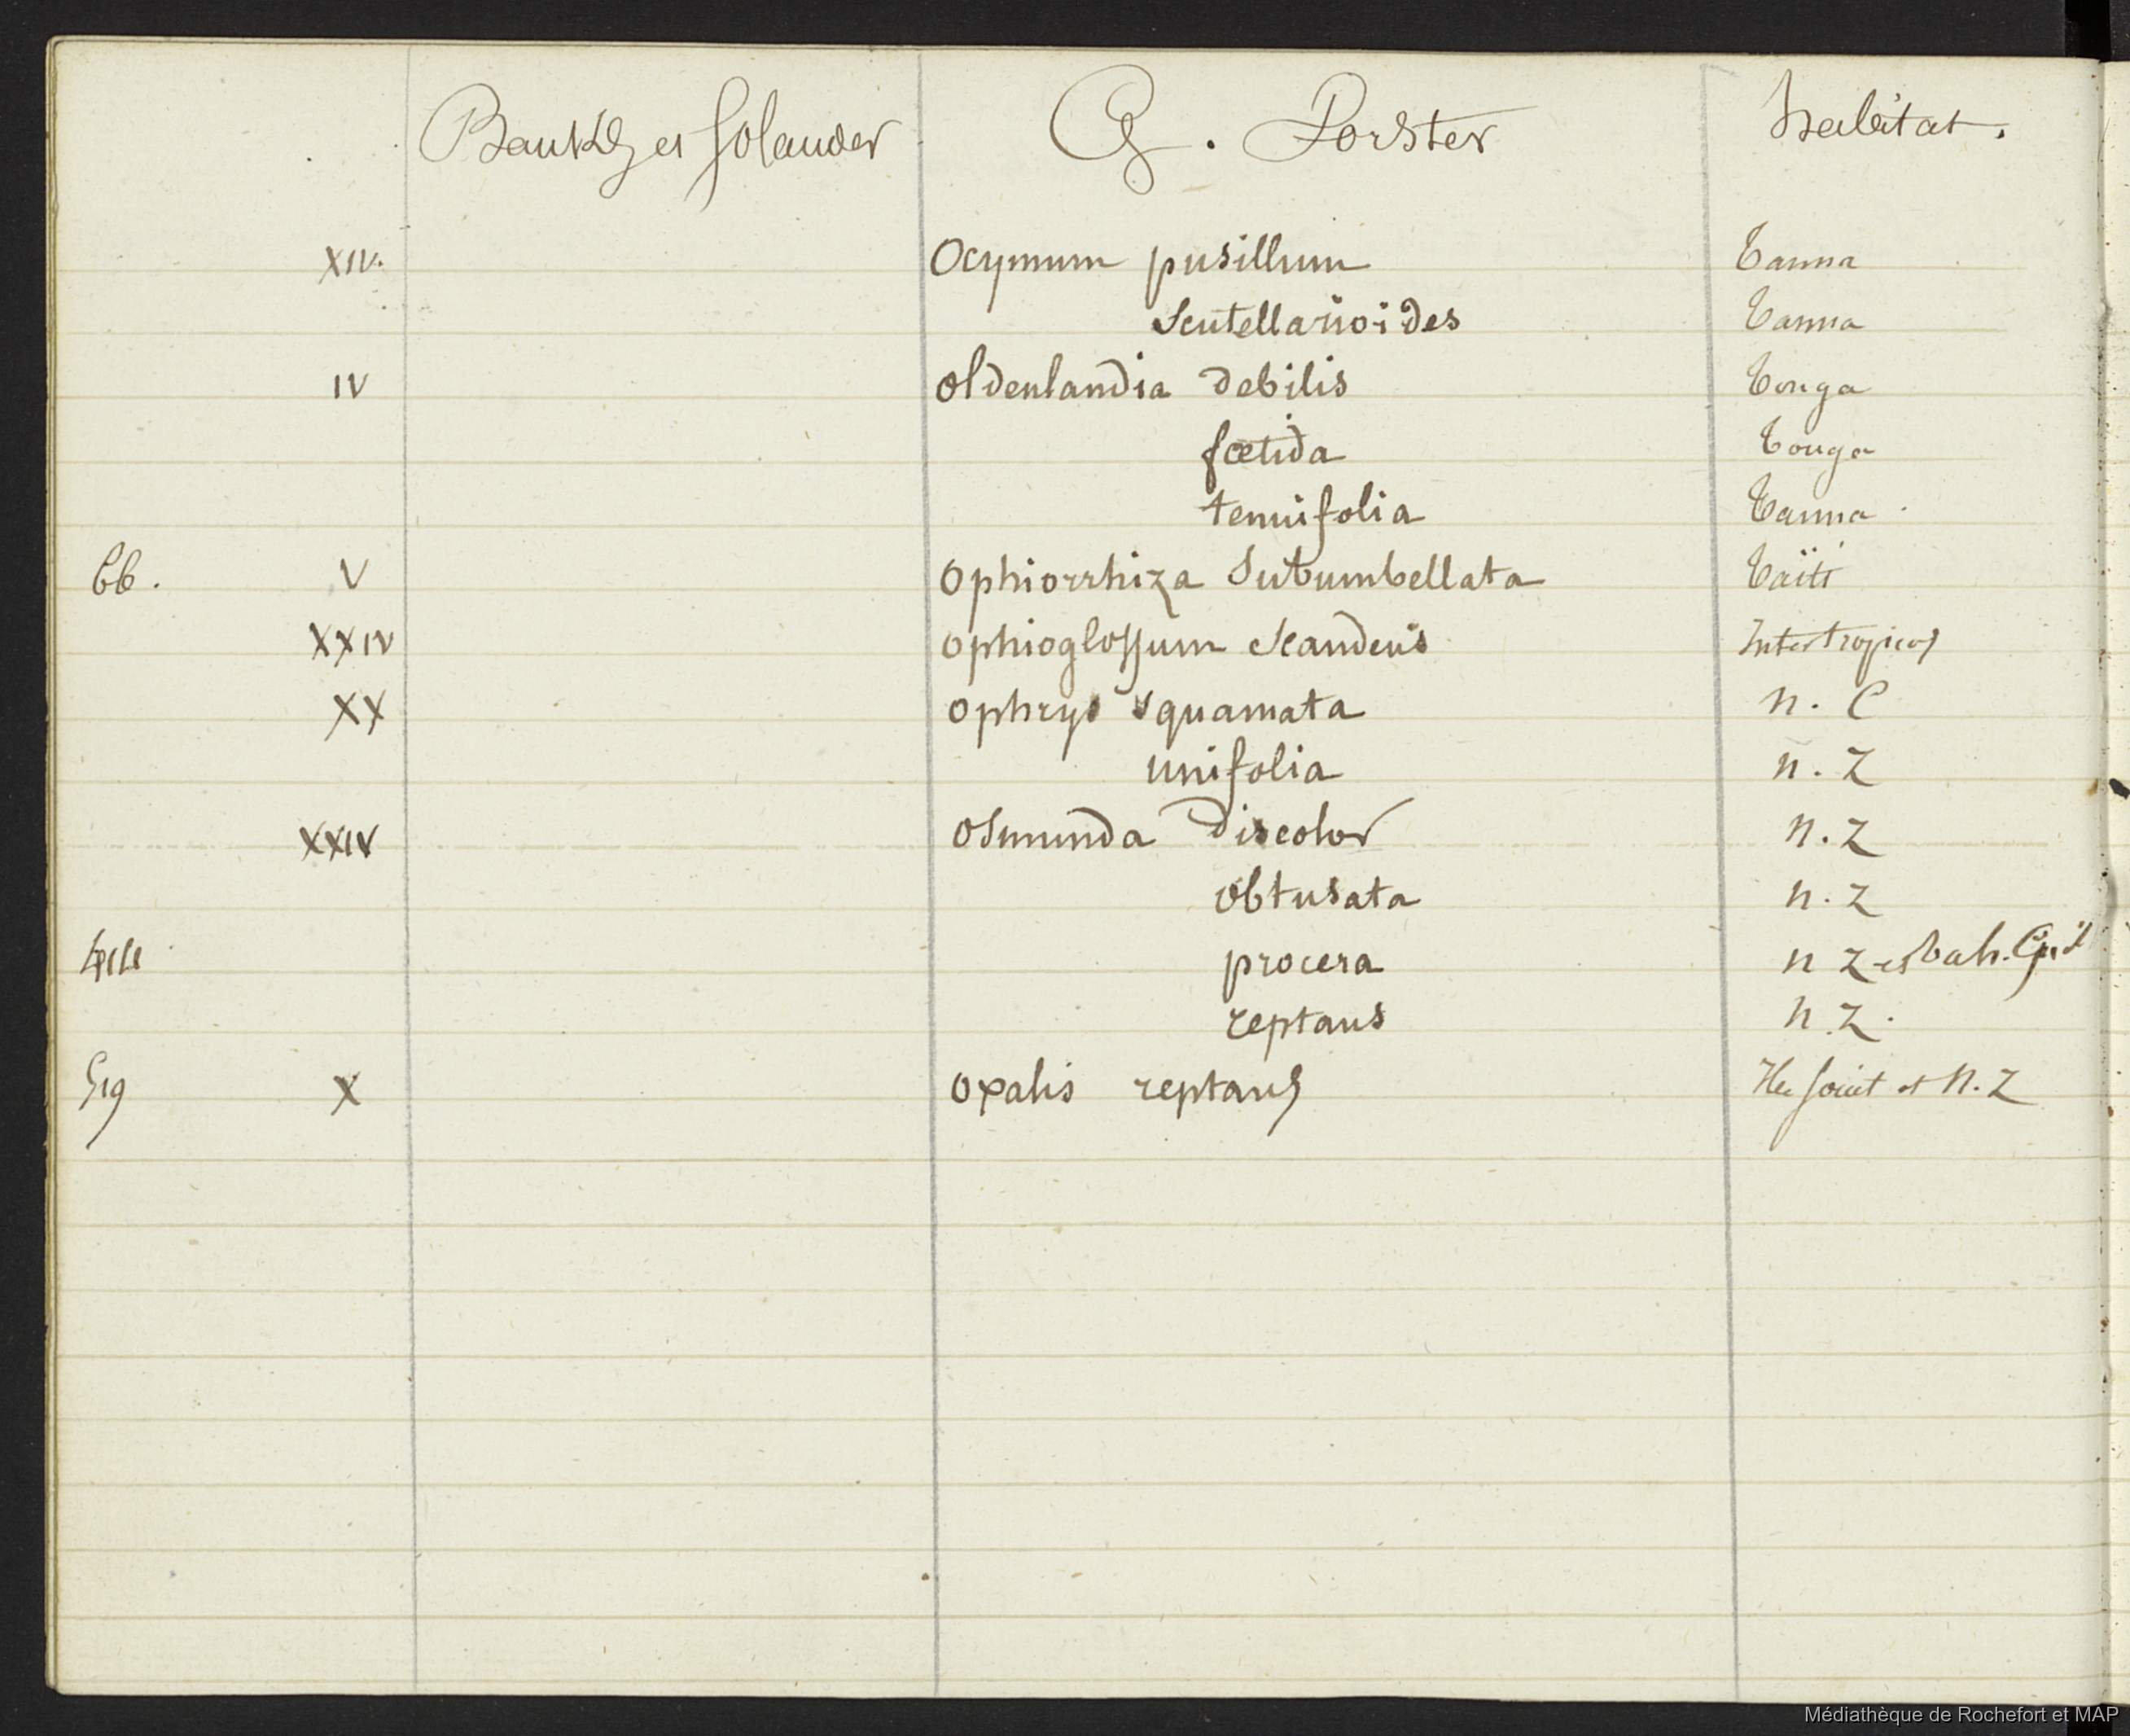 Banks et Solander G. Forster habitat.
XIV. Ocymum pusillum Tanna
Scutellarioides Tanna
IV Oldenlandia debilis Tonga
fœtida Tonga
tenuifolia Tanna
bb. V Ophiorrhiza Subumbellata Taïti
XXIV Ophioglossum Scandens Intertropicos
XX Ophrys squamata n. C
unifolia n. Z
XXIV Osmunda Discolor n. Z
obtusata n. Z
procera n Z et
reptans n. Z.
X Oxalis reptans et N. Z
Médiathèque de Rochefort et MAP